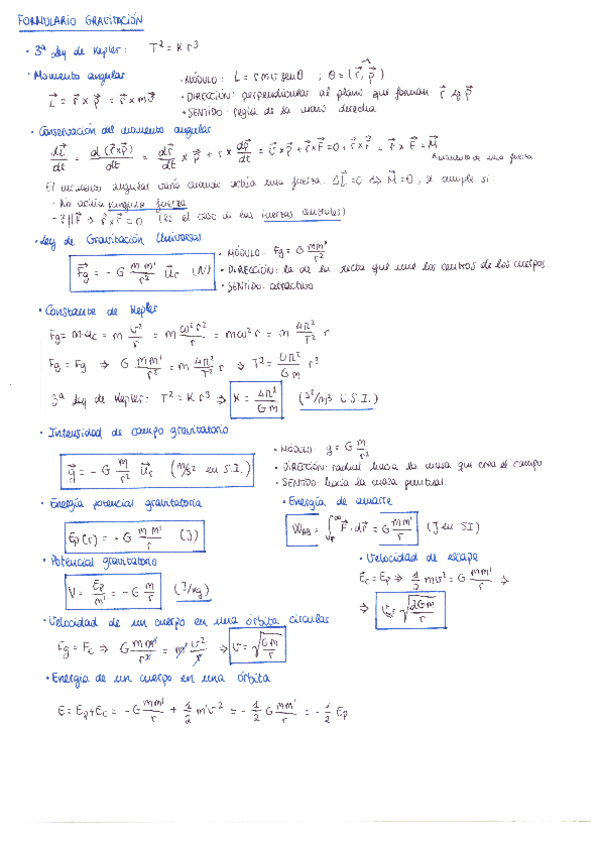 FORMULARIO GRAVITACIÓN
· 3ª Ley de Kepler: T² = K r³
· Momento angular
· MÓDULO: L = r m v senθ ; θ = (r⃗, p⃗)
L⃗ = r⃗ × p⃗ = r⃗ × mv⃗
· DIRECCIÓN: perpendicular al plano que forman r⃗ y p⃗
· SENTIDO: regla de la mano derecha
· Conservación del momento angular
dL⃗/dt = d(r⃗×p⃗)/dt = dr⃗/dt × p⃗ + r × dp⃗/dt = v⃗ × p⃗ + r⃗ × F⃗ = 0 + r⃗ × F⃗ = r⃗ × F⃗ = M⃗
momento de una fuerza
El momento angular varía cuando actúa una fuerza. ΔL⃗ = 0 ⇔ M⃗ = 0, se cumple si:
- No actúa ninguna fuerza
- r⃗ ∥ F⃗ ⇒ r⃗ × F⃗ = 0 (es el caso de las fuerzas centrales)
· Ley de Gravitación Universal
· MÓDULO: Fg = G mm'/r²
F⃗g = - G m m'/r² u⃗r (N)
· DIRECCIÓN: la de la recta que une los centros de los cuerpos.
· SENTIDO: atractivo
· Constante de Kepler
Fg = m·ac = m v²/r = m ω² r²/r = mω² r = m 4π²/T² r
Fg = Fg ⇒ G m m'/r² = m 4π²/T² r ⇒ T² = 4π²/G m r³
3ª Ley de Kepler: T² = K r³ ⇒ K = 4π²/G m (s²/m³ U.S.I.)
· Intensidad de campo gravitatorio
· MÓDULO: g = G m/r²
g⃗ = - G m/r² u⃗r (m/s² en S.I.)
· DIRECCIÓN: radial hacia la masa que crea el campo
· SENTIDO: hacia la masa puntual.
· Energía potencial gravitatoria
· Energía de amarre
Ep(r) = - G m m'/r (J)
F⃗ · dr⃗ = G mm'/r (J en SI)
· Potencial gravitatorio
· Velocidad de escape
V = Ep/m' = - G m/r (J/kg)
Ec = Ep ⇒ 1/2 mv² = G m m'/r ⇒
⇒ v = √(2Gm/r)
· Velocidad de un cuerpo en una órbita circular
Fg = Fc ⇒ G mm'/r² = m' v²/r ⇒ v = √(Gm/r)
· Energía de un cuerpo en una órbita
E = Ep + Ec = - G mm'/r + 1/2 m'v² = - 1/2 G mm'/r = - 1/2 Ep